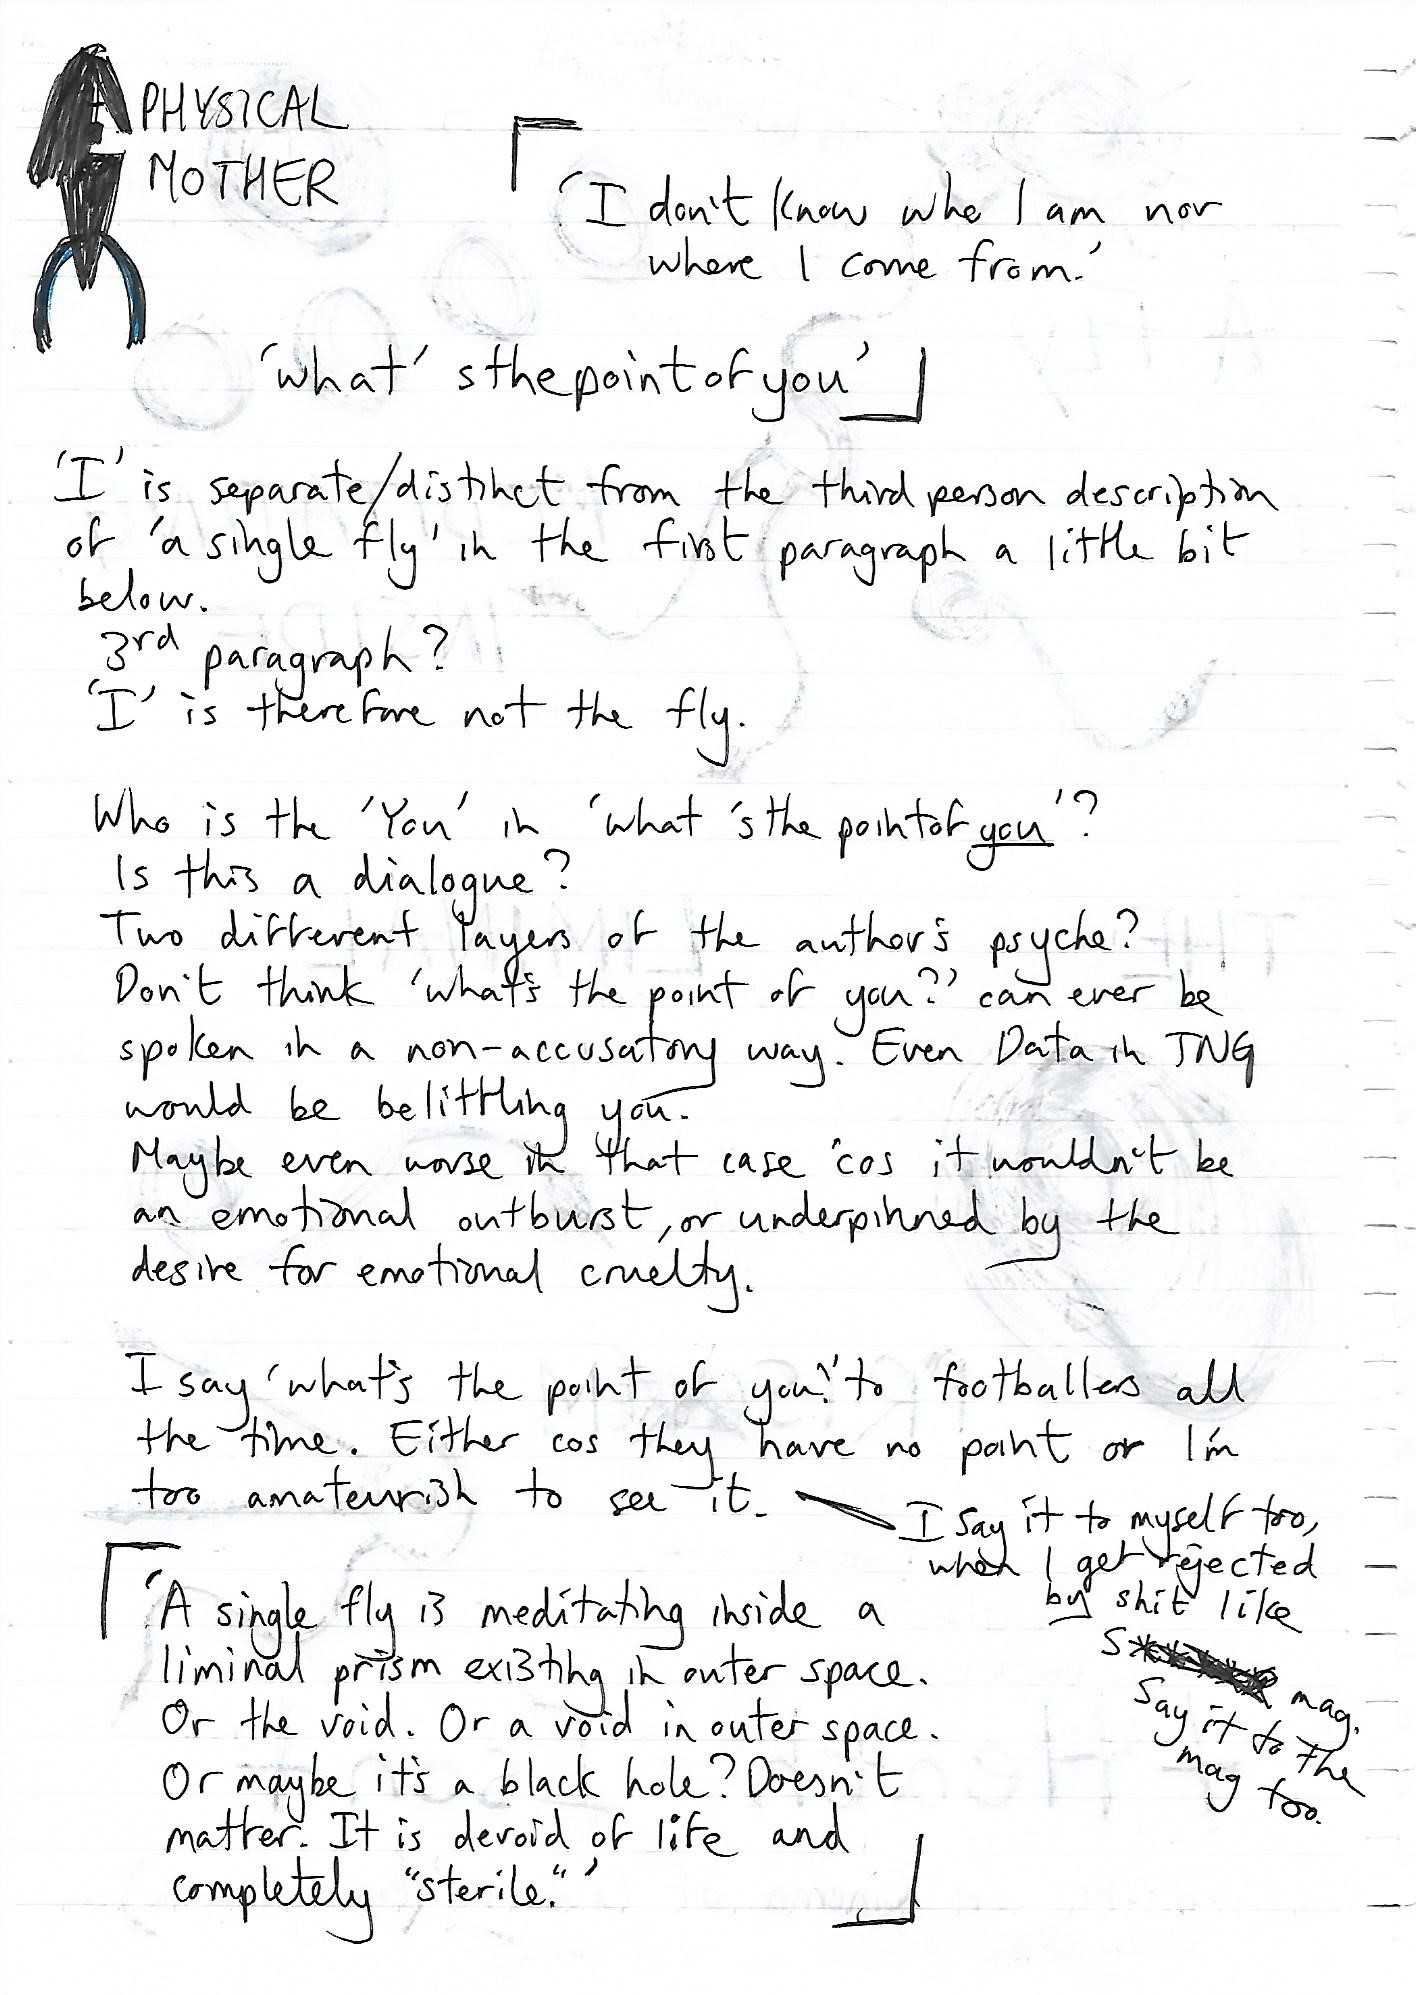 A PHYSICAL
MOTHER
'I don't know who I am nor
where I come from.'
'what' sthepointofyou'
'I' is separate/distinct from the third person description
of 'a single fly' in the first paragraph a little bit
below.
3rd paragraph?
'I' is therefore not the fly.
Who is the 'You' in 'what 'sthe pointof you'?
Is this a dialogue?
Two different layers of the author's psyche?
Don't think 'what's the point of you?' can ever be
spoken in a non-accusatory way. Even Data in TNG
would be belittling you.
Maybe even worse in that case 'cos it wouldn't be
an emotional outburst, or underpinned by the
desire for emotional cruelty.
I say 'what's the point of you?' to footballers all
the time. Either cos they have no point or I'm
too amateurish to see it.
I say it to myself too,
when I get rejected
by shit like
S mag.
Say it to the
mag too.
'A single fly is meditating inside a
liminal prism existing in outer space.
Or the void. Or a void in outer space.
Or maybe it's a black hole? Doesn't
matter. It is devoid of life and
completely "sterile."'